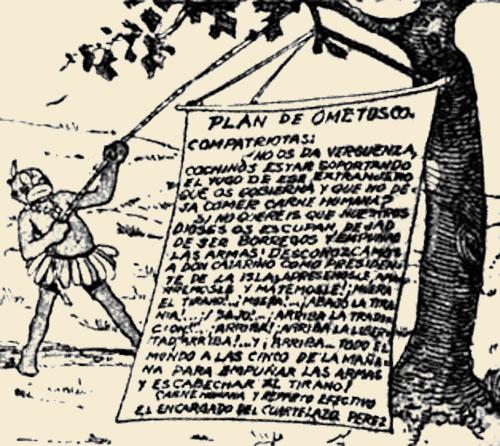 PLAN DE OMETUSCO.
COMPATRIOTAS:
¿NO OS DA VERGUENZA,
COCHINOS ESTAR SOPORTANDO
EL YUGO DE ESE EXTRANJERO
QUE OS GOBIERNA Y QUE NO DE-
JA COMER CARNE HUMANA?
SI NO QUEREIS QUE NUESTROS
DIOSES OS ESCUPAN, DEJAD
DE SER BORREGOS Y EMPUÑAD
LAS ARMAS! DESCONOZCAMOS
A DON CATARINO COMO PRESIDEN-
TE DE LA ISLA; APRESEMOSLE,
Y MATEMOSLE! ¡MUERA
EL TIRANO!...¡MUERA!...¡ABAJO LA TIRA-
NIA!...¡BAJO!...¡ARRIBA LA TRADI-
CION!...¡ARRIBA! ¡ARRIBA LA LIBER-
TAD! ¡ARRIBA!...Y ¡ARRIBA...TODO EL
MUNDO A LAS CINCO DE LA MAÑA-
NA PARA EMPUÑAR LAS ARMAS
Y ESCABECHAR AL TIRANO!
CARNE HUMANA Y REPARTO EFECTIVO
EL ENCARGADO DEL CUARTELAZO. PEREZ